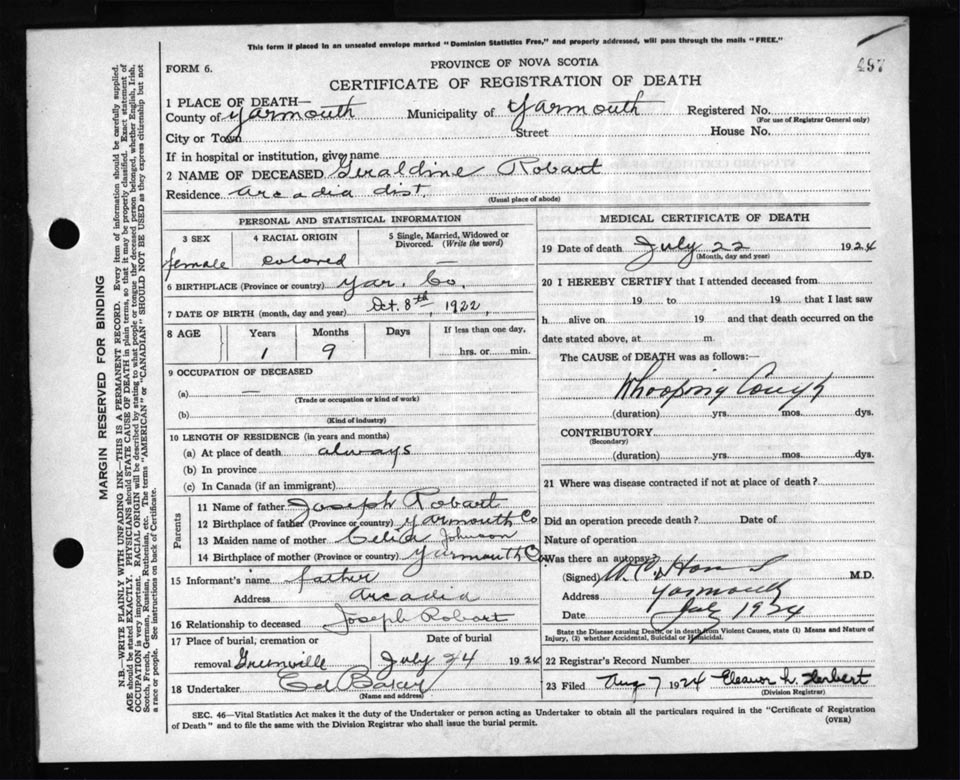 This form if placed in an unsealed envelope marked "Dominion Statistics Free," and properly addressed, will pass through the mails "FREE."
497
FORM 6.
PROVINCE OF NOVA SCOTIA
CERTIFICATE OF REGISTRATION OF DEATH
1 PLACE OF DEATH—
County of Yarmouth Municipality of Yarmouth Registered No.
(For use of Registrar General only)
City or Town Street House No.
If in hospital or institution, give name
2 NAME OF DECEASED Geraldine Robart
Residence Arcadia dist.
(Usual place of abode)
PERSONAL AND STATISTICAL INFORMATION
3 SEX 4 RACIAL ORIGIN 5 Single, Married, Widowed or Divorced. (Write the word)
female colored —
6 BIRTHPLACE (Province or country) Yar. Co.
7 DATE OF BIRTH (month, day and year) Oct. 8th, 1922,
8 AGE Years Months Days If less than one day,
1 9 hrs. or min.
9 OCCUPATION OF DECEASED
(a) —
(Trade or occupation or kind of work)
(b)
(Kind of industry)
10 LENGTH OF RESIDENCE (in years and months)
(a) At place of death always
(b) In province
(c) In Canada (if an immigrant)
Parents
11 Name of father Joseph Robart
12 Birthplace of father (Province or country) Yarmouth Co
13 Maiden name of mother Celia Johnson
14 Birthplace of mother (Province or country) Yarmouth Co
15 Informant's name father
Address Arcadia
16 Relationship to deceased Joseph Robart
17 Place of burial, cremation or Date of burial
removal Greenville July 24 1924
18 Undertaker Ed
(Name and address)
MEDICAL CERTIFICATE OF DEATH
19 Date of death July 22 1924
(Month, day and year)
20 I HEREBY CERTIFY that I attended deceased from
19 to 19 that I last saw
h alive on 19 and that death occurred on the
date stated above, at m.
The CAUSE of DEATH was as follows:—
Whooping Cough
(duration) yrs. mos. dys.
CONTRIBUTORY
(Secondary)
(duration) yrs. mos. dys.
21 Where was disease contracted if not at place of death?
Did an operation precede death? Date of
Nature of operation
Was there an autopsy?
(Signed) M.D.
Address Yarmouth
Date July 1924
State the Disease causing Death, or in death from Violent Causes, state (1) Means and Nature of
Injury, (2) whether Accidental, Suicidal or Homicidal.
22 Registrar's Record Number
23 Filed Aug 7 1924 Eleanor L. Herbert
(Division Registrar)
SEC. 46—Vital Statistics Act makes it the duty of the Undertaker or person acting as Undertaker to obtain all the particulars required in the "Certificate of Registration
of Death" and to file the same with the Division Registrar who shall issue the burial permit.
(OVER)
MARGIN RESERVED FOR BINDING
N.B.—WRITE PLAINLY WITH UNFADING INK—THIS IS A PERMANENT RECORD. Every item of information should be carefully supplied.
AGE should be stated EXACTLY. PHYSICIANS should STATE CAUSE OF DEATH in plain terms, so that it may be properly classified. Exact statement of
OCCUPATION is very important. RACIAL ORIGIN will be described by stating to what people or tongue the deceased person belonged, whether English, Irish,
Scotch, French, German, Russian, Ruthenian, etc. The terms "AMERICAN" or "CANADIAN" SHOULD NOT BE USED as they express citizenship but not
a race or people. See instructions on back of Certificate.